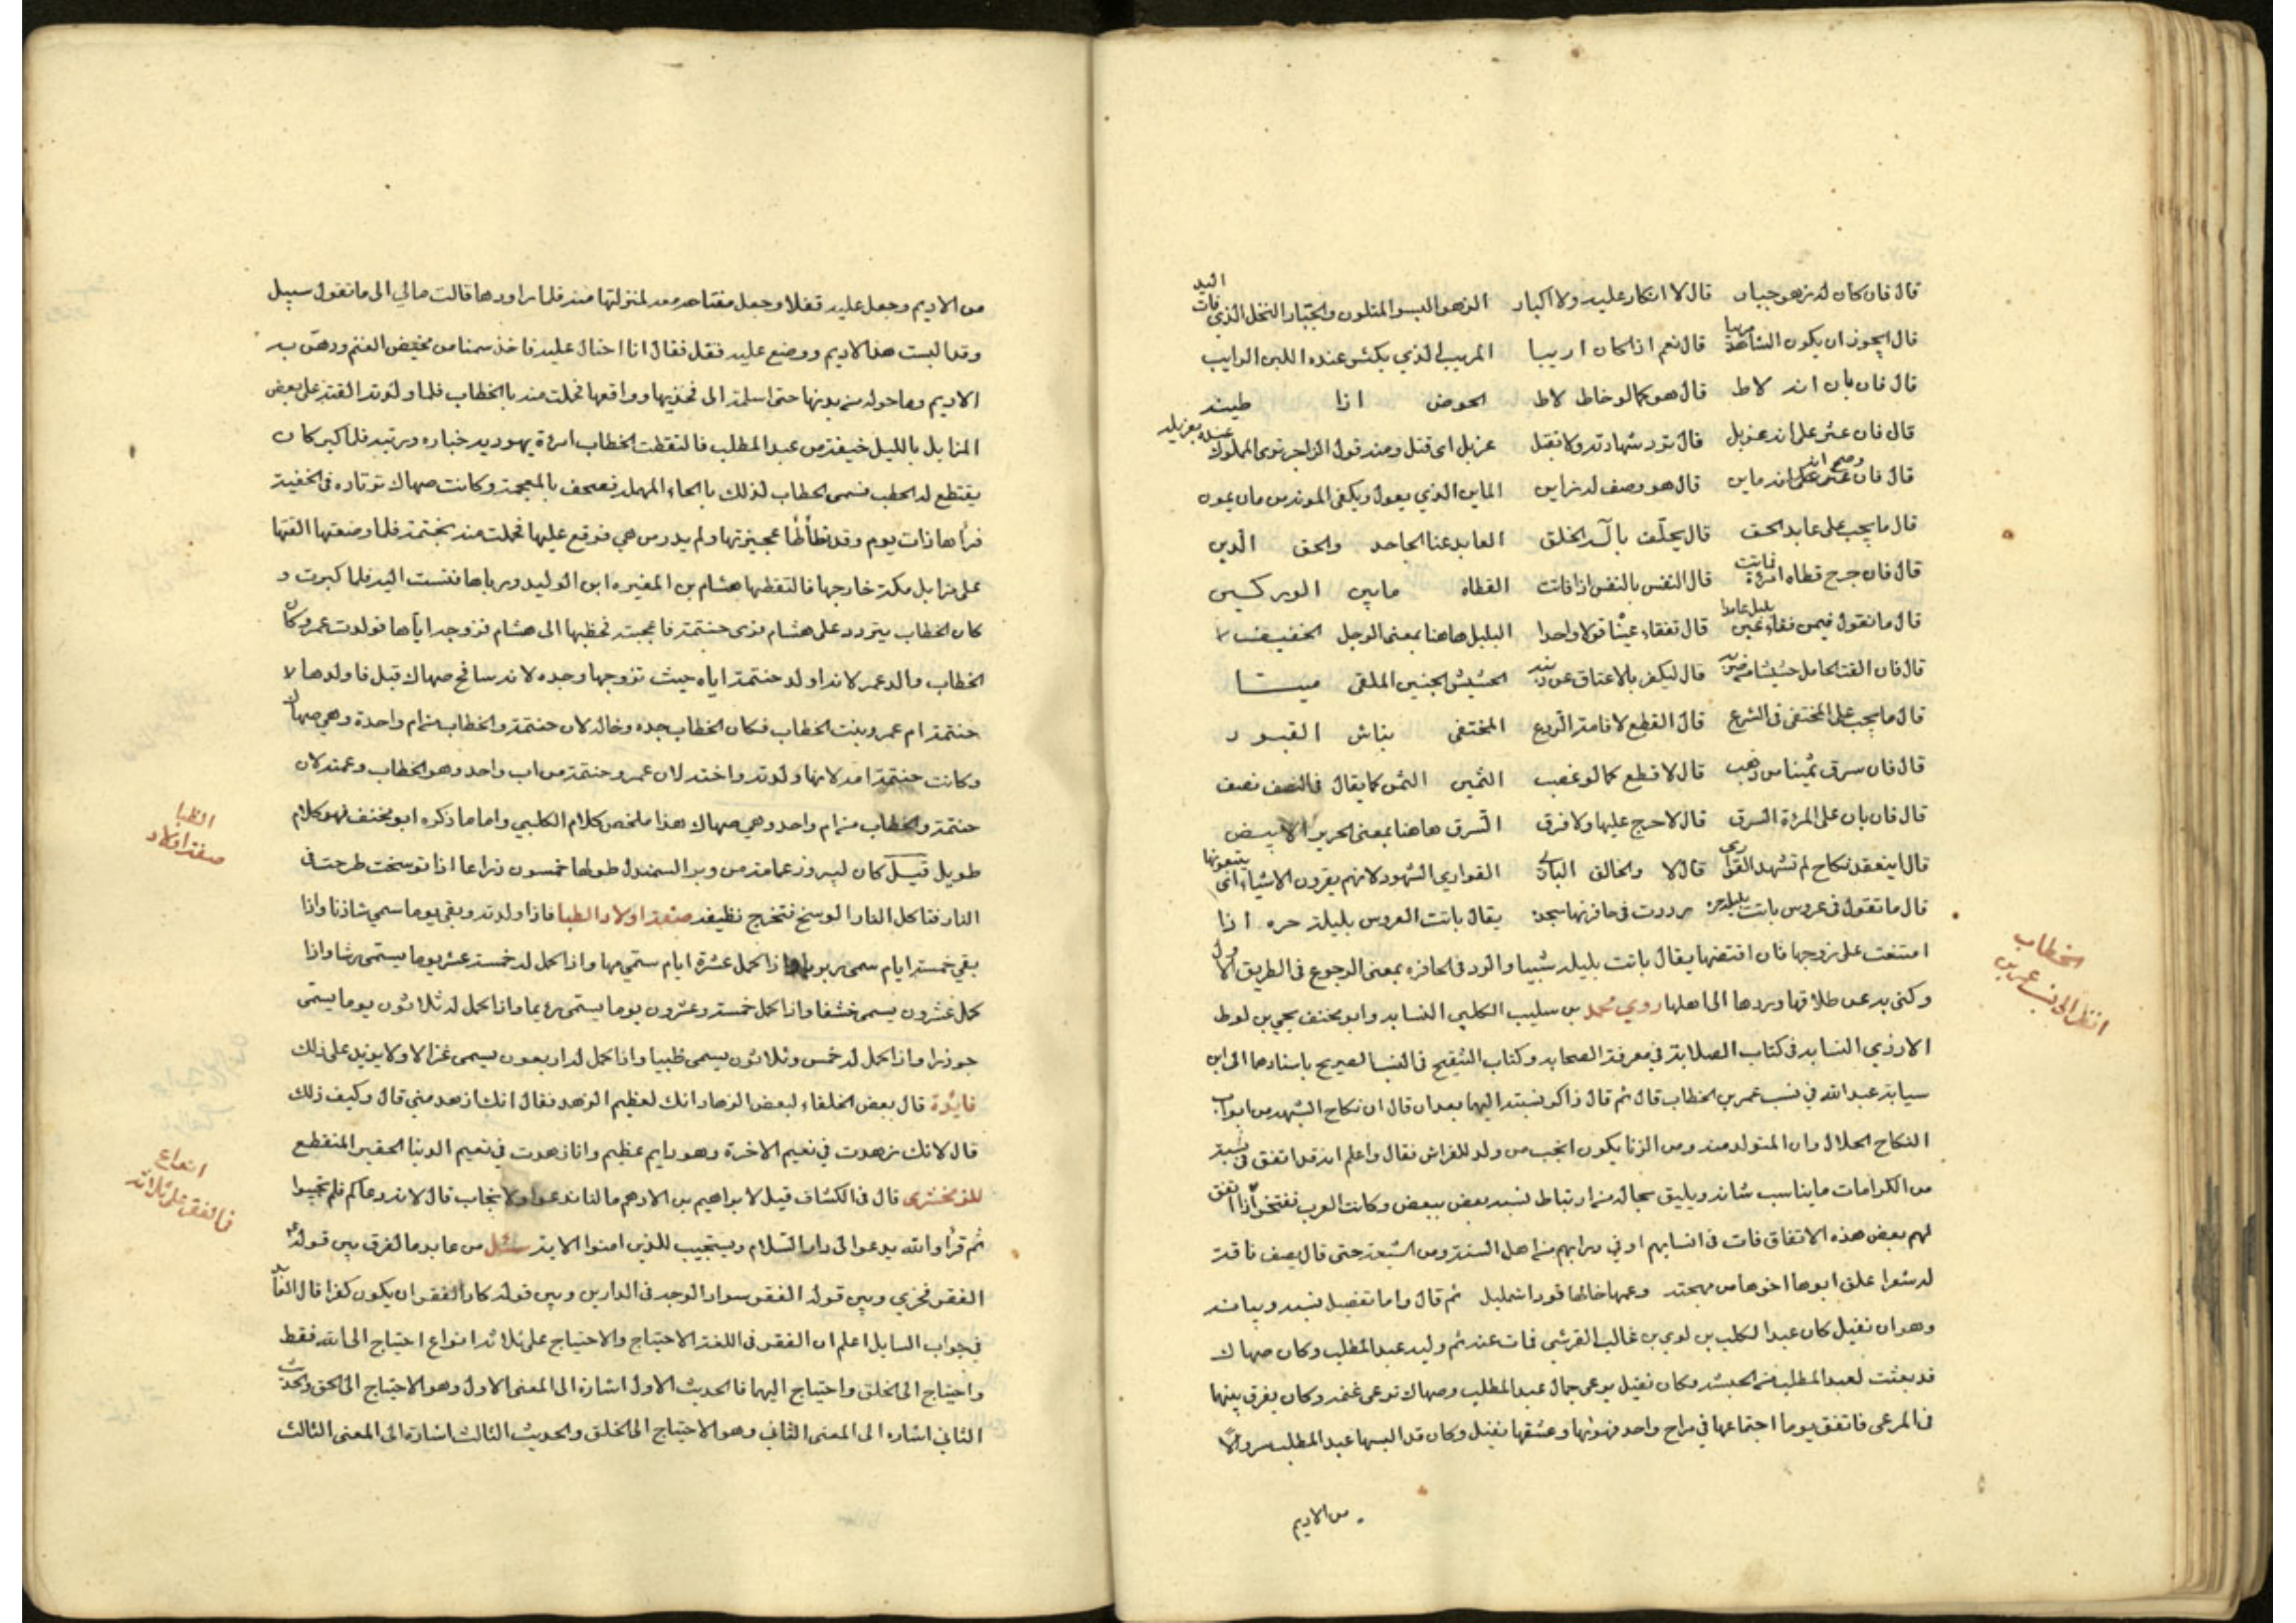 قال فان كان له زهو جبار قال لا انكار عليه ولا اكبار الزهو البسر المتلون والجبار النخل الذي فات اليد
قال ايجوز ان يكون الشاهد مريبا قال نعم اذا كان اريبا المريب الذي يكثر عنده اللبن الرايب
قال فان بان انه لاط قال هو كما لو خاط لاط الحوض اذا طينه
قال فان عثر على انه غربل قال ترد شهادته ولا تقبل غربل اى قتل ومنه قول الراجز ترى الملوك حوله مغربله
قال فان وضح انه ماين قال هو وصف له زاين الماين الذي يعول ويكفي المونه من مان يمون
قال ما يجب على عابد الحق قال يحلف باله الخلق العابد هنا الجاحد والحق الدين
قال فان جرح قطاه امرءة فماتت قال النفس بالنفس اذا فاتت القطاه مابين الوركين
قال ما تقول فيمن فقاء عين بلبل عامدا قال تفقاء عينه قولا واحدا البلبل هاهنا بمعنى الرجل الخفيف
قال فان القت الحامل حشيشا من ضربه قال ليكفر بالاعتاق عن ذنبه الحشيش الجنين الملقى ميتا
قال ما يجب على المختفى فى الشرع قال القطع لاقامة الردع المختفى نباش القبور
قال فان سرق ثمينا من ذهب قال لا قطع كما لو غصب الثمين الثمن كما يقال فى النصف نصيف
قال فان بان على المرءة السرق قال لا حرج عليها ولا فرق السرق هاهنا بمعنى الحرير الابيض
قال اينعقد نكاح لم تشهده القوارى قال لا والخالق البارى القوارى الشهود لانهم يقرون الاشياء اى يتبعونها
قال ما تقول فى عروس باتت بليلة حره ردت فى حافرتها سحره يقال باتت العروس بليلة حره اذا
امتنعت على زوجها فان افتضها يقال باتت بليلة شيبا والرد فى الحافره بمعنى الرجوع فى الطريق الاول
وكنى به عن طلاقها وردها الى اهلها روي محمد بن سليب الكلبي النسابه وابو مخنف يحي بن لوط
الازدي النسابه فى كتاب الصلابة في معرفة الصحابه وكتاب التنقيح فى النسب الصريح باسنادهما الى ابن
سيابة عبد الله في نسب عمر بن الخطاب قال ثم قال ذاكر نسبته اليها بعد ان قال ان نكاح الشبهه من ابواب
النكاح الحلال وان المتولد منه ومن الزنا يكون انجب من ولد للفراش فقال واعلم انه قد اتفق فى نسبه
من الكرامات ما يناسب شانه ويليق بحاله من ارتباط نسبه بعض ببعض وكانت العرب تفتخر اذا اتفق
لهم بعض هذه الاتفاقات فى انسابهم او في دوابهم من اهل السنة ومن الشيعه حتى قال يصف ناقة
له شعرا علق ابوها اخوها من مهجنه وعمها خالها قودا شمليل ثم قال واما تفصيل نسبه وبيانه
وهو ان نفيل كان عبدا لكلب بن لوي بن غالب القرشي فمات عنه ثم وليه عبد المطلب وكان صهاك
قد بعثت لعبد المطلب من الحبشه وكان نفيل يرعى جمال عبد المطلب وصهاك ترعى غنمه وكان يفرق بينهما
فى المرعى فاتفق يوما اجتماعهما في مراح واحد فهويها وعشقها نفيل وكان قد البسها عبد المطلب سروالا
من الاديم
الخطاب
انظر الى نسب عمر بن
من الاديم وجعل عليه قفلا وجعل مفتاحه معه لمنزلتها منه فلما راودها قالت مالي الى ما تقول سبيل
وقد البست هذا الاديم ووضع عليه قفل فقال انا احتال عليه فاخذ سمنا من مخيض الغنم ودهن به
الاديم وما حوله من بدنها حتى استله الى فخذيها وواقعها فحملت منه بالخطاب فلما ولدته القته على بعض
المزابل بالليل خيفة من عبد المطلب فالتقطت الخطاب امرءة يهوديه خبازه وربته فلما كبر كان
يقتطع له الحطب فسمى الحطاب لذلك بالحاء المهمله فصحف بالمعجمة وكانت صهاك ترتاده فى الخفية
فرأها ذات يوم وقد تطأطأ عجيزتها ولم يدر من هي فوقع عليها فحملت منه بختمة فلما وضعتها القتها
على مزابل مكة خارجها فالتقطها هشام بن المغيره ابن الوليد ورباها فنسبت اليه فلما كبرت و
كان الخطاب يتردد على هشام فرى حنتمة فاعجبته فخطبها الى هشام فزوجه اياها فولدت عمر وكان
الخطاب والد عمر لانه اولد حنتمة اياه حيث تزوجها وجده لانه سافح صهاك قبل فاولدها لا
حنتمة ام عمر وبنت الخطاب فكان الخطاب جده وخاله لان حنتمة والخطاب من ام واحدة وهي صهاك
وكانت حنتمة امه لانها ولدته واخته لان عمر وحنتمة من اب واحد وهو الخطاب وعمته لان
حنتمة والخطاب من ام واحد وهي صهاك هذا ملخص كلام الكلبي واما ما ذكره ابو مخنف فهو كلام
طويل قيل كان لپروز عمامة من وبر السمندل طولها خمسون ذراعا اذا توسخت طرحت فى
النار فتاكل النار الوسخ فتخرج نظيفه صفة اولاد الظبا فاذا ولدته وبقي يوما سمي شادنا واذا
بقي خمسة ايام سمى ربربا واذا كمل عشرة ايام سمي مها واذا كمل له خمسة عشر يوما يسمى رشا واذا
كمل عشرون يسمى خشفا واذا كمل خمسة وعشرون يوما يسمى رءيما واذا كمل له ثلاثون يوما يسمى
جوذرا واذا كمل له خمس وثلاثون يسمى ظبيا واذا كمل له اربعون يسمى غزالا ولا يزيد على ذلك
فايدة قال بعض الخلفاء لبعض الزهاد انك لعظيم الزهد فقال انك ازهد مني قال وكيف ذلك
قال لانك زهدت في نعيم الاخرة وهو دايم عظيم وانا زهدت في نعيم الدنيا الحقير المنقطع
للزمخشرى قال فى الكشاف قيل لابراهيم بن الادهم ما لنا ندعوا ولا نجاب قال لانه دعاكم فلم تجيبوا
ثم قرأ والله يدعوا الى دار السلام ويستجيب للذين امنوا الاية سئل من عابد ما الفرق بين قوله
الفقر فخري وبين قوله الفقر سواد الوجه فى الدارين وبين قوله كاد الفقر ان يكون كفرا قال
في جواب السايل اعلم ان الفقر فى اللغة الاحتياج والاحتياج على ثلاثة انواع احتياج الى الله فقط
واحتياج الى الخلق واحتياج اليهما فالحديث الاول اشارة الى المعنى الاول وهو الاحتياج الى الحق والحديث
الثاني اشاره الى المعنى الثاني وهو الاحتياج الى الخلق والحديث الثالث اشارة الى المعنى الثالث
الظبا
صفة اولاد
انواع
فالفقر على ثلاثة